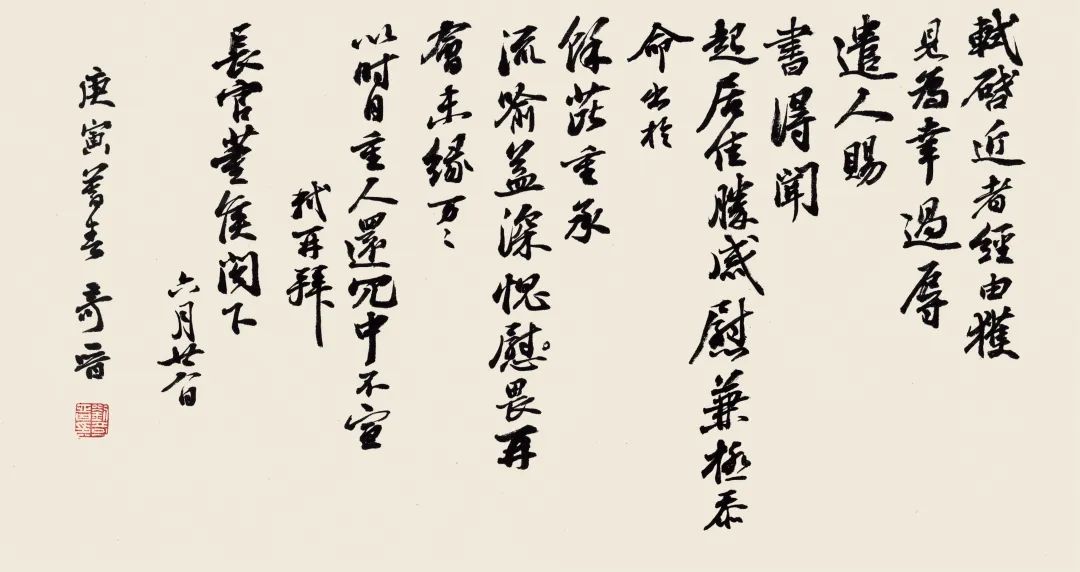 軾啓近者經由獲
見為幸過辱
遣人賜
書得聞
起居佳勝感慰兼極忝
命出於
餘芘重承
流喻益深愧慰畏再
會未緣万〻
以时自重人還冗中不宣
軾再拜
長官董侯閤下
六月廿八日
庚寅暮春 奇晉